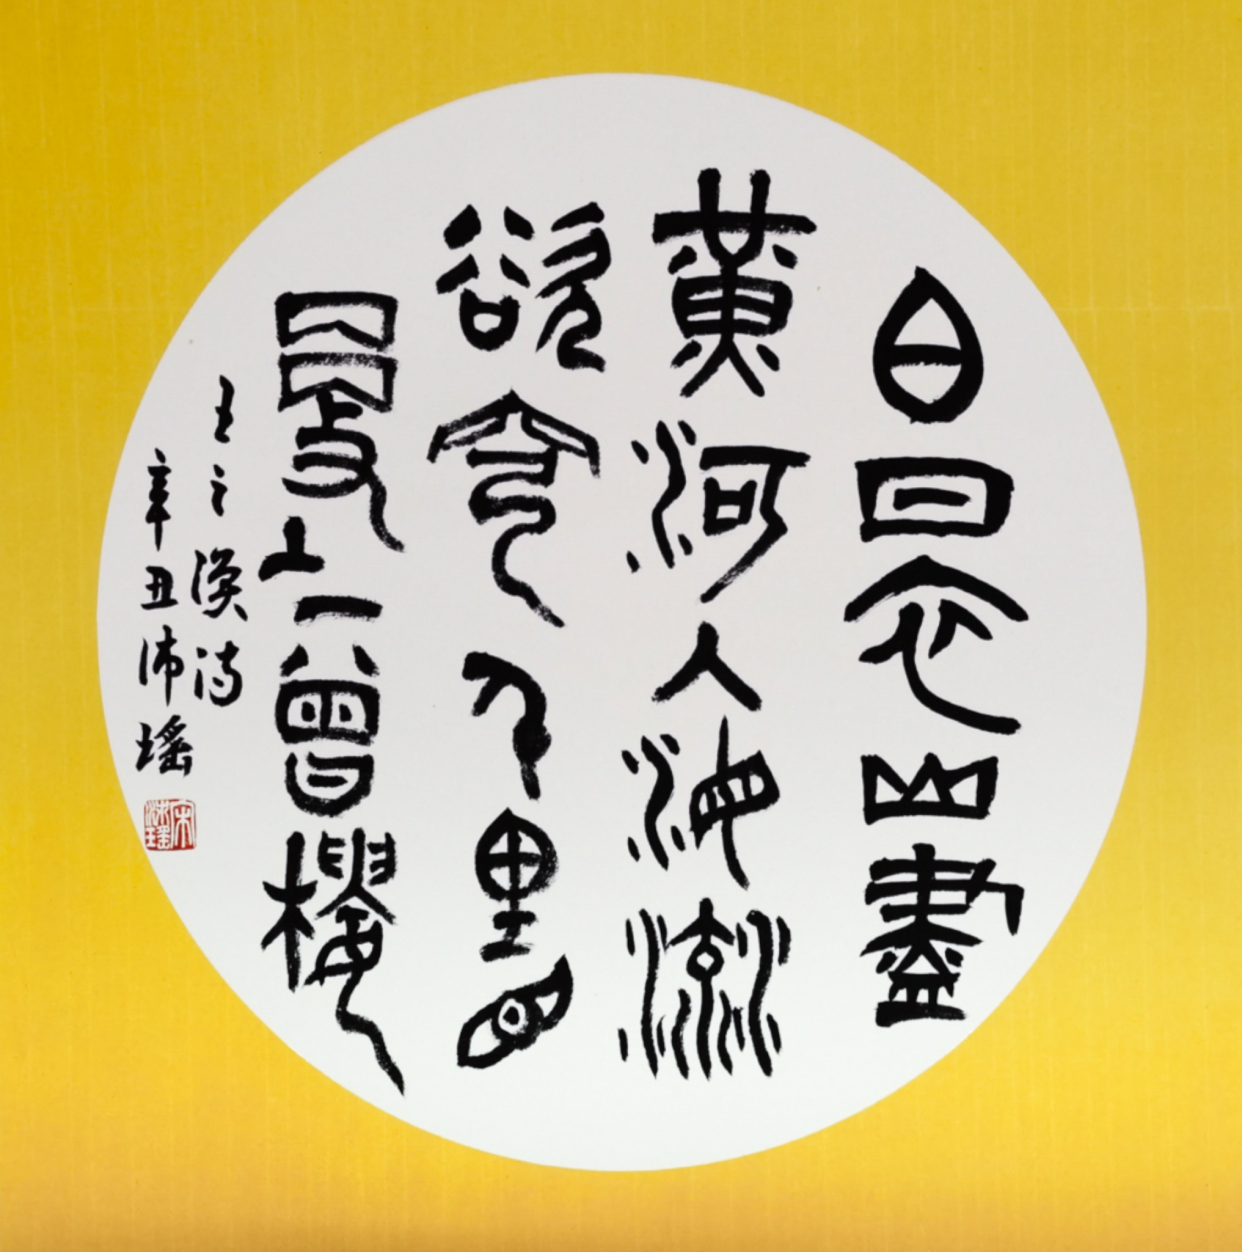 白日衣山盡
黃河入海流
欲窮千里目
更上一曾樓
王之渙詩
辛丑沛瑶
宋沛瑶